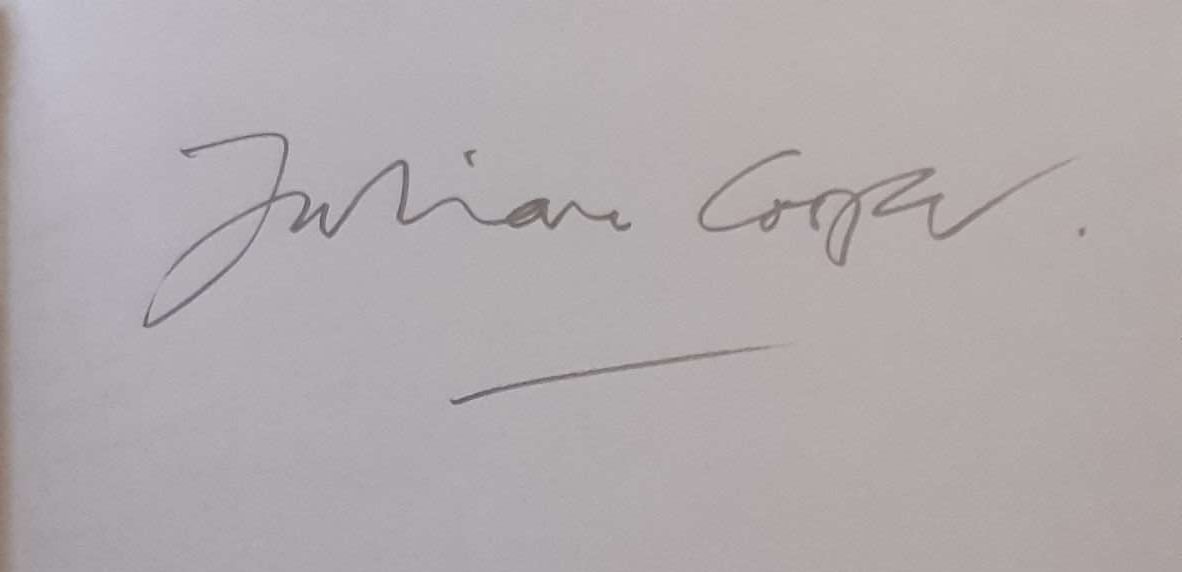 Julian Cooper.